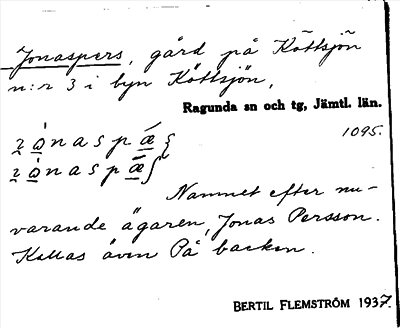 Jonaspers, gård på Köttsjön
n:r 3 i byn Köttsjön,
Ragunda sn och tg, Jämtl. län.
1095.
Namnet efter nu-
varande ägaren, Jonas Persson.
Kallas även På backen.
BERTIL FLEMSTRÖM 1937.